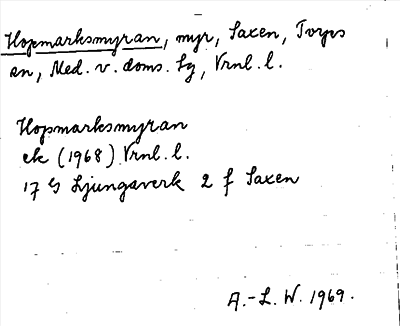 Hopmarksmyran, myr, Saxen, Torps
sn, Med. v. doms. hg, Vrnl. l.
Hopmarksmyran
ek (1968) Vrnl. l.
17 G Ljungaverk 2 f Saxen
A.-L. W. 1969.